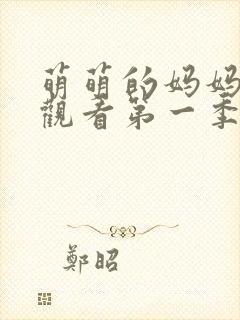 萌萌的妈妈
觀看第一季
鄭昭